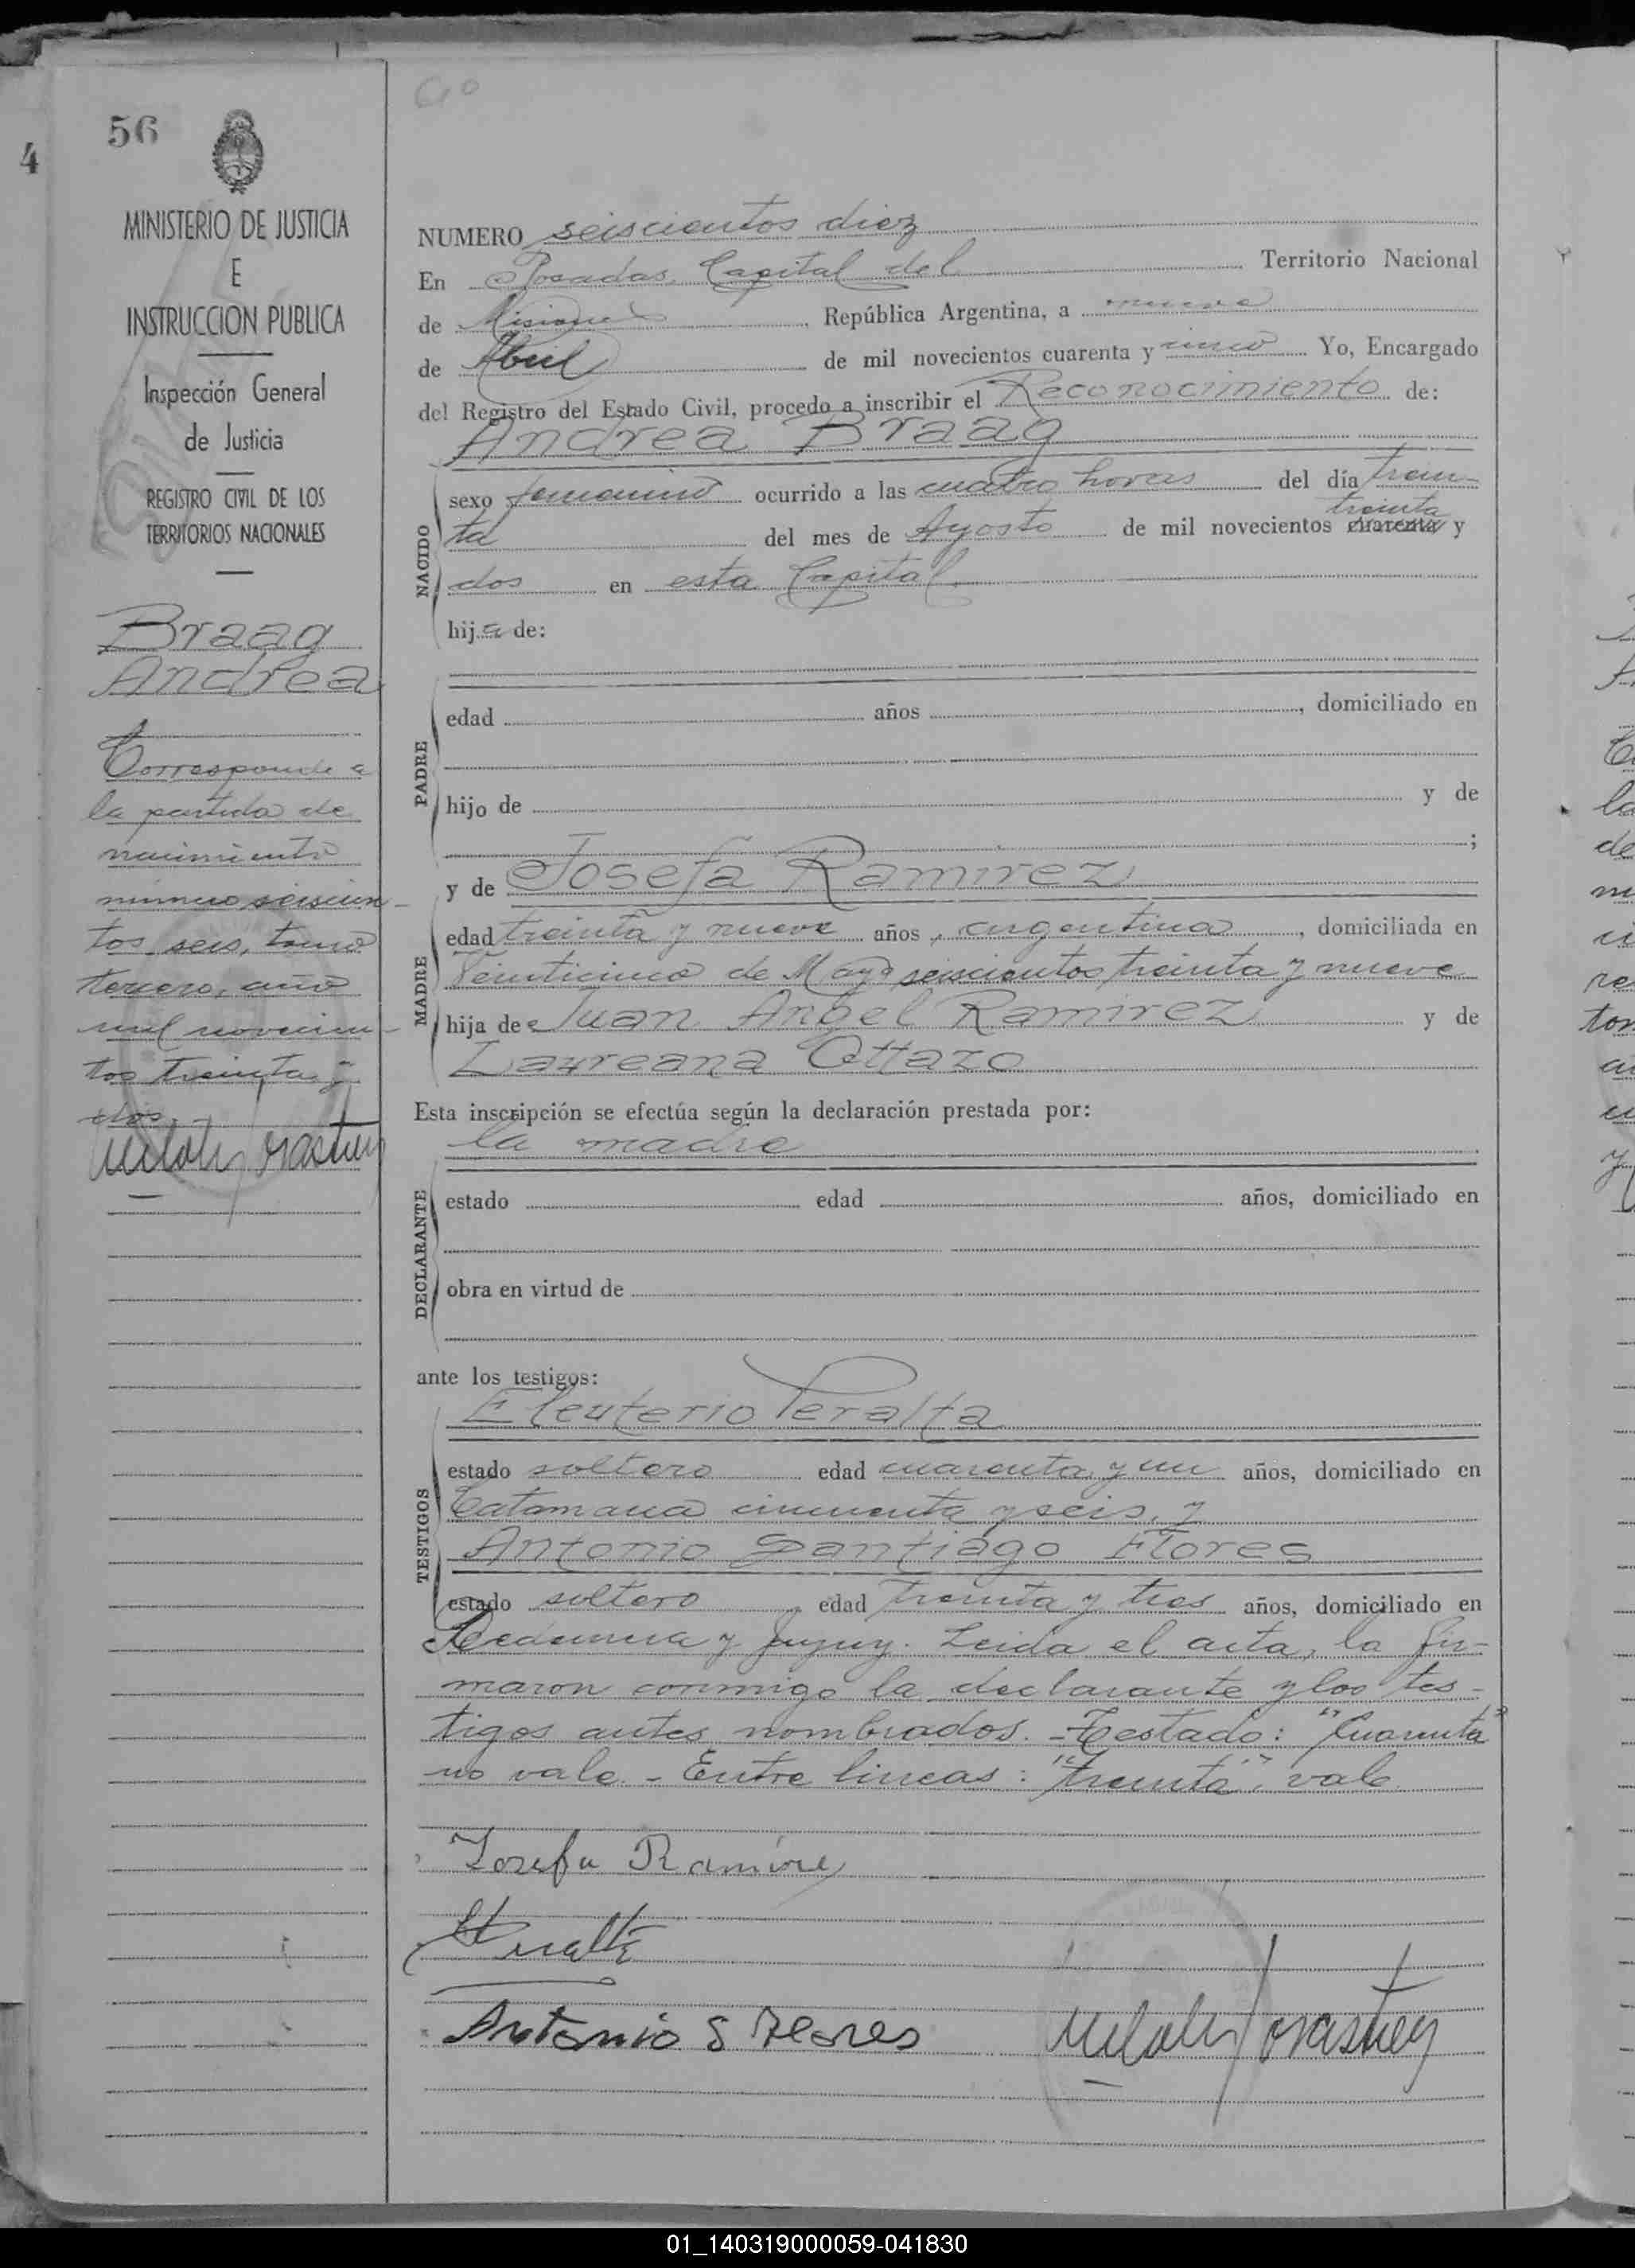 610
56
4
MINISTERIO DE JUSTICIA
E
INSTRUCCION PUBLICA
Inspección General
de Justicia
REGISTRO CIVIL DE LOS
TERRITORIOS NACIONALES
Braag
Andrea
Corresponde a
la partida de
nacimiento
número seiscien-
tos seis, tomo
tercero, año
mil novecien-
tos treinta y
dos.
NUMERO seiscientos diez
En Posadas, Capital del Territorio Nacional
de Misiones República Argentina, a nueve
de Abril de mil novecientos cuarenta y cinco Yo, Encargado
del Registro del Estado Civil, procedo a inscribir el Reconocimiento de:
Andrea Braag
NACIDO
sexo femenino ocurrido a las cuatro horas del día trein-
treinta
ta del mes de Agosto de mil novecientos cuarenta y
dos en esta Capital
hija de:
PADRE
edad años , domiciliado en
hijo de y de
;
MADRE
y de Josefa Ramirez
edad treinta y nueve años, argentina, domiciliada en
Veinticinco de Mayo seiscientos treinta y nueve
hija de Juan Angel Ramirez y de
Laureana Ottazo
Esta inscripción se efectúa según la declaración prestada por:
la madre
DECLARANTE
estado edad años, domiciliado en
obra en virtud de
ante los testigos:
TESTIGOS
Eleuterio Peralta
estado soltero edad cuarenta y un años, domiciliado en
Catamarca cincuenta y seis, y
Antonio Santiago Flores
estado soltero edad treinta y tres años, domiciliado en
y Jujuy. Leida el acta, la fir-
maron conmigo la declarante y los tes-
tigos antes nombrados. - Testado: "Cuarenta"
no vale - Entre lineas: "treinta", vale
Josefa Ramirez
Antonio S Flores
01_140319000059-041830